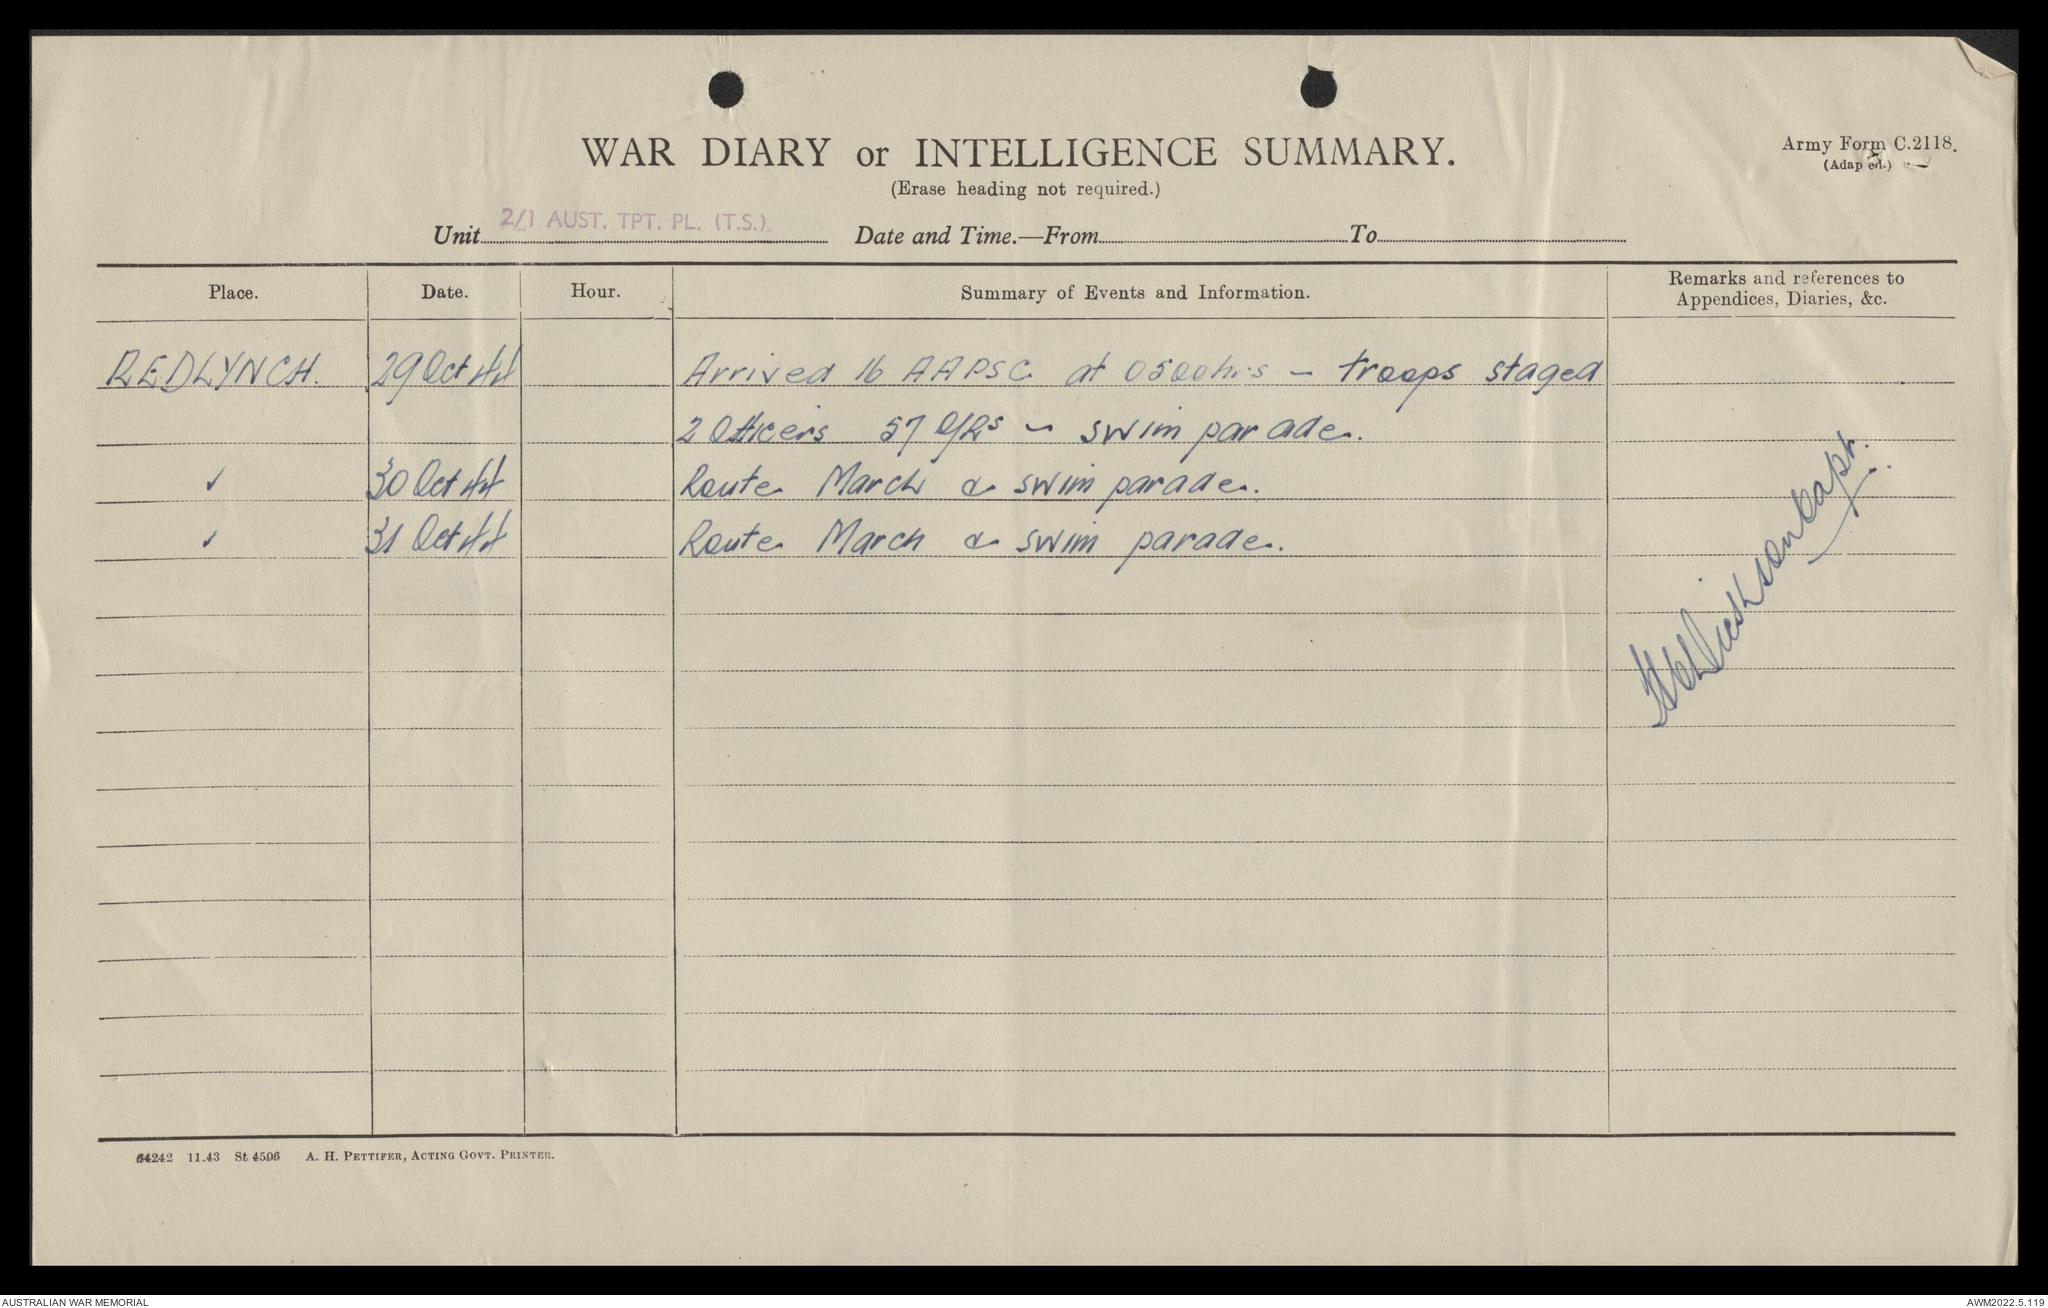 WAR DIARY or INTELLIGENCE SUMMARY.
Army Form C.2118.
(Adapted.)
(Erase heading not required.)
Unit 2/1 AUST. TPT. PL. (T.S.) Date and Time.—From To
Place. Date. Hour. Summary of Events and Information. Remarks and references to Appendices, Diaries, &c.
REDLYNCH. 29 Oct 44 Arrived 16 AAPSC at 0500hrs - troops staged
2 Officers 57 O/Rs - swim parade.
✓ 30 Oct 44 Route March & swim parade.
✓ 31 Oct 44 Route March & swim parade.
Capt.
64242 11.43 St 4506 A. H. PETTIFER, ACTING GOVT. PRINTER.
AUSTRALIAN WAR MEMORIAL AWM2022.5.119